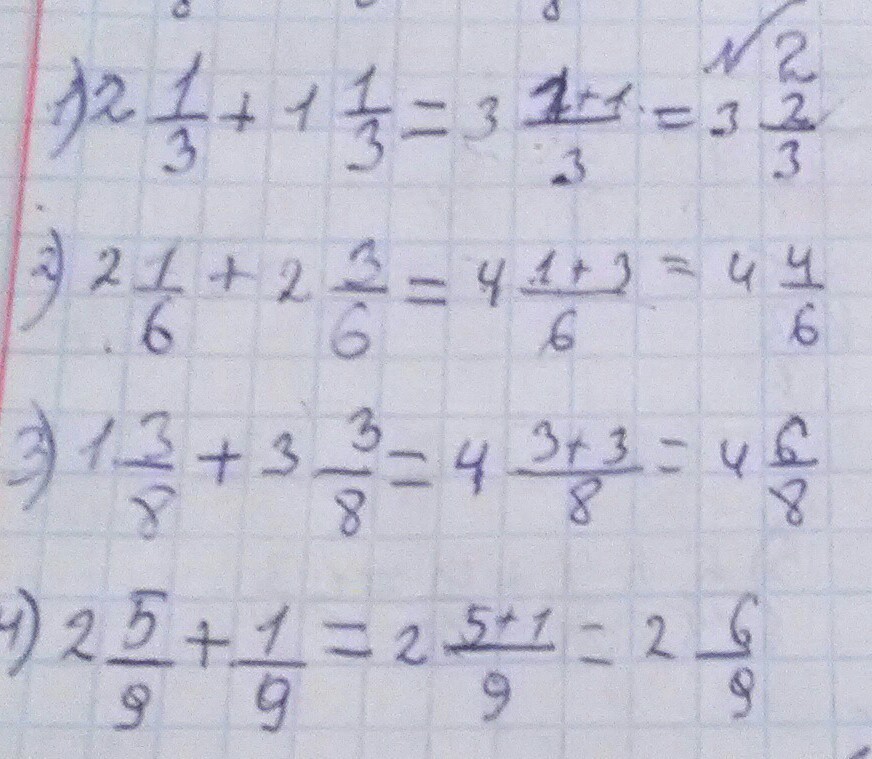 №2
1) 2 1/3 + 1 1/3 = 3 1+1/3 = 3 2/3
2) 2 1/6 + 2 3/6 = 4 1+3/6 = 4 4/6
3) 1 3/8 + 3 3/8 = 4 3+3/8 = 4 6/8
4) 2 5/9 + 1/9 = 2 5+1/9 = 2 6/9